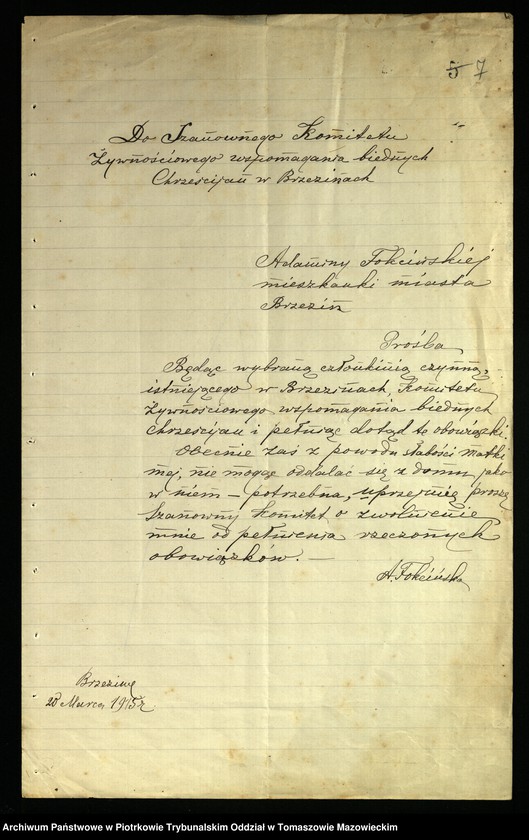 5 7
Do Szanownego Komitetu
Żywnościowego wspomagania biednych
Chrześcijan w Brzezinach
Adaminy Fokcińskiej
mieszkanki miasta
Brzezin
Prośba
Będąc wybraną członkinią czynną,
istniejącego w Brzezinach, Komitetu
Żywnościowego wspomagania biednych
Chrześcijan i pełniąc dotąd te obowiązki.
Obecnie zaś z powodu słabości matki
mej, nie mogąc oddalać się z domu, jako
w niem – potrzebna, uprzejmie proszę
Szanowny Komitet o zwolnienie
mnie od pełnienia rzeczonych
obowiązków. –
A. Fokcińska
Brzeziny
20 Marca 1915 r.
Archiwum Państwowe w Piotrkowie Trybunalskim Oddział w Tomaszowie Mazowieckim